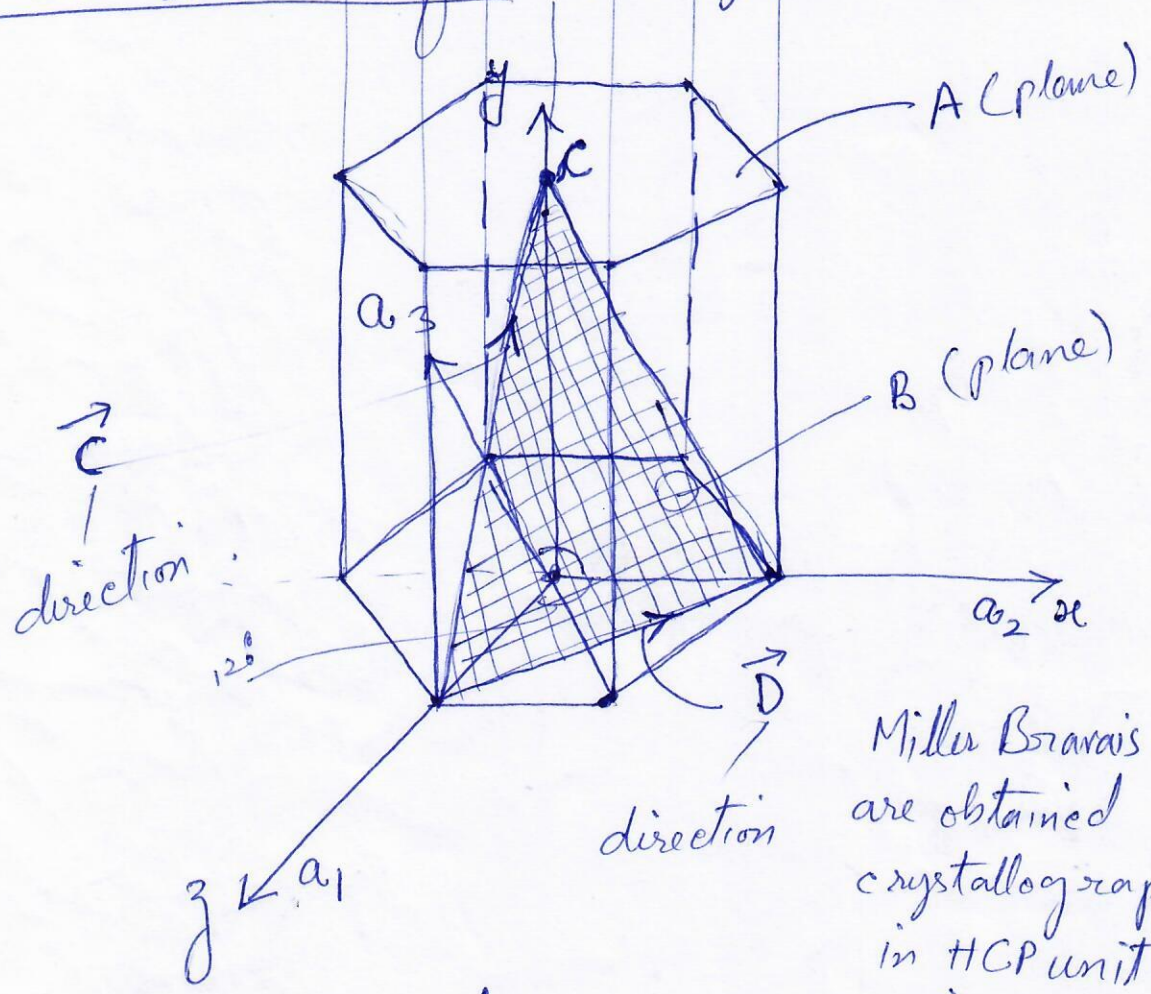 y
A (plane)
C
a3
B (plane)
C
direction
120°
a2 x
D
direction
a1
z
Miller Bravais
are obtained
crystallograp
in HCP unit